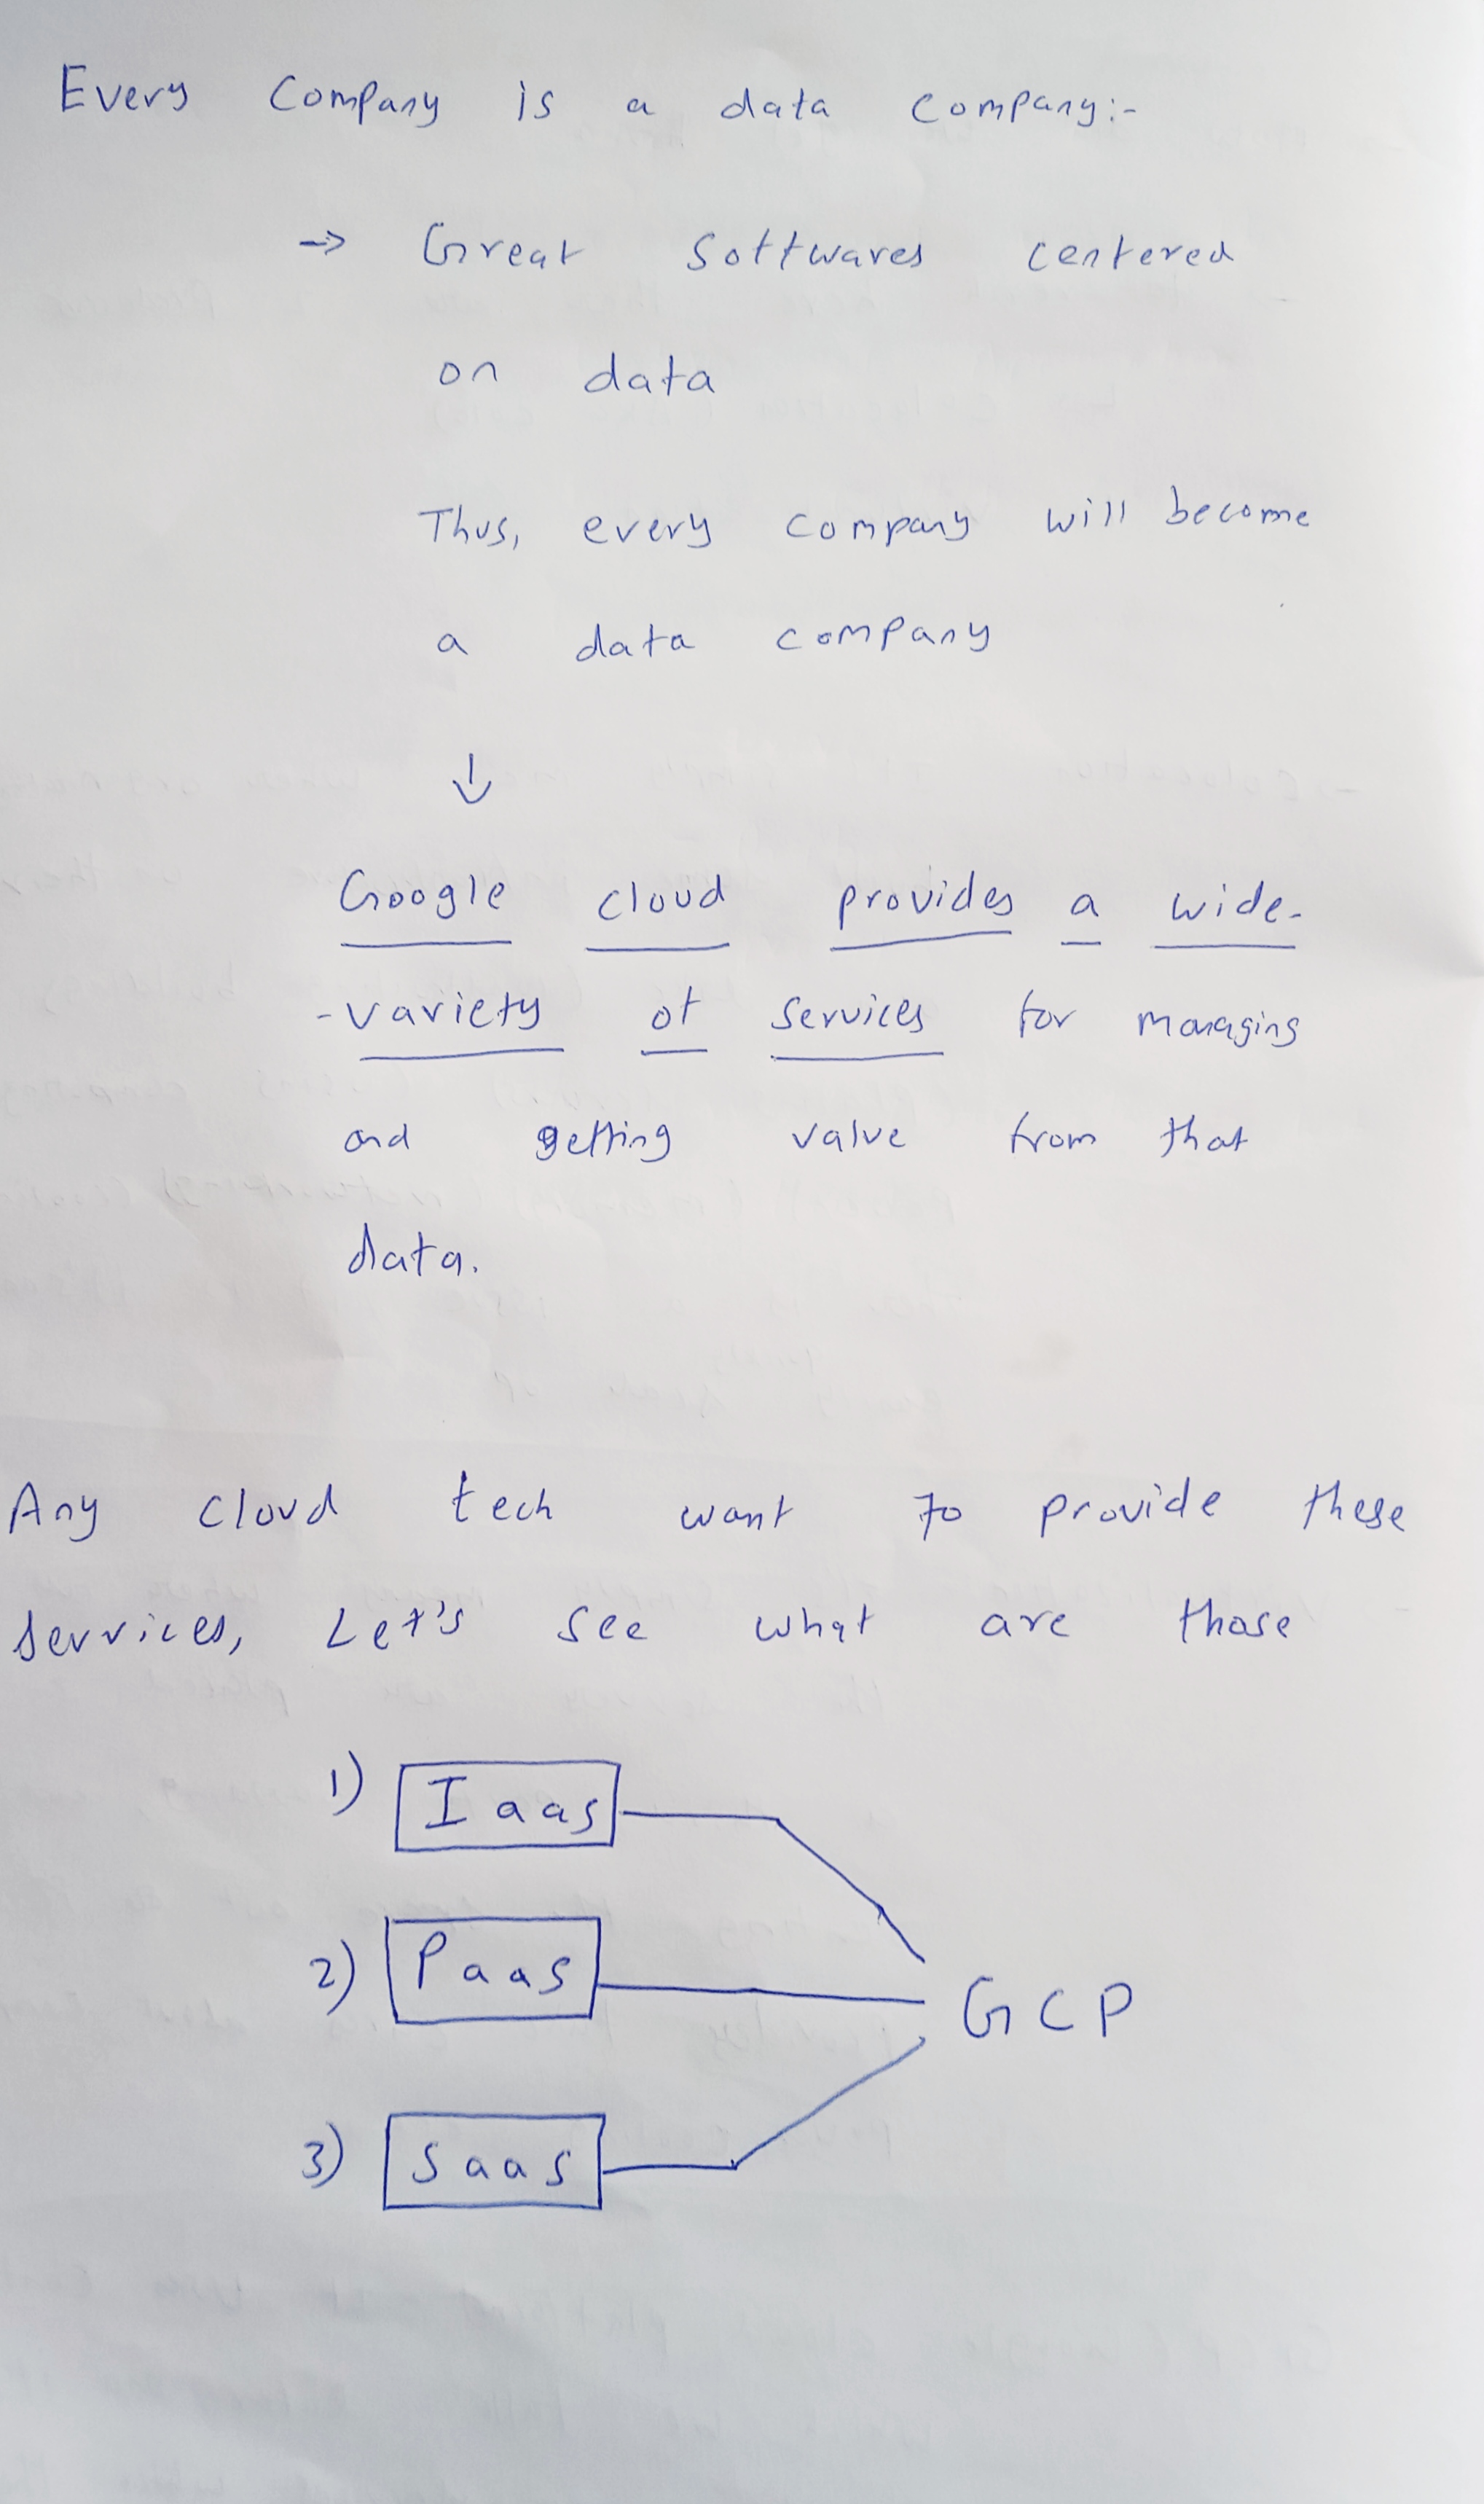 Every Company is a data Company:-
→ Great Softwares centered
on data
Thus, every company will become
a data company
↓
Google cloud provides a wide-
-variety of services for managing
and getting value from that
data.
Any cloud tech want to provide these
services, Let's see what are those
1) Iaas
2) Paas
GCP
3) Saas